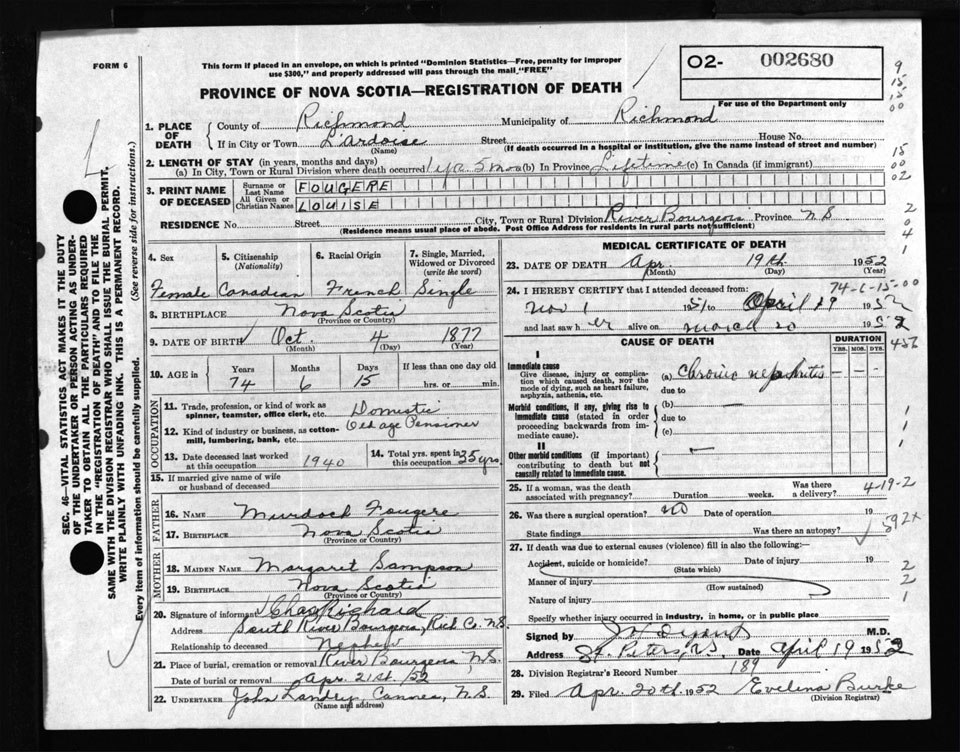 FORM 6
This form if placed in an envelope, on which is printed "Dominion Statistics—Free, penalty for improper
use $300," and properly addressed will pass through the mail "FREE"
O2- 002680
For use of the Department only
PROVINCE OF NOVA SCOTIA—REGISTRATION OF DEATH
9
15
15
00
15
00
02
2
0
4
1
1. PLACE OF DEATH
County of Richmond Municipality of Richmond
If in City or Town L'Ardoise Street House No.
(Name) (If death occurred in a hospital or institution, give the name instead of street and number)
2. LENGTH OF STAY (in years, months and days)
(a) In City, Town or Rural Division where death occurred 1 yr. 5 mos (b) In Province Lifetime (c) In Canada (if immigrant)
3. PRINT NAME OF DECEASED
Surname or Last Name FOUGERE
All Given or Christian Names LOUISE
RESIDENCE No. Street City, Town or Rural Division River Bourgeois Province N S
(Residence means usual place of abode. Post Office Address for residents in rural parts not sufficient)
SEC. 46—VITAL STATISTICS ACT MAKES IT THE DUTY
OF THE UNDERTAKER OR PERSON ACTING AS UNDER-
TAKER TO OBTAIN ALL THE PARTICULARS REQUIRED
IN THE "REGISTRATION OF DEATH" AND TO FILE THE
SAME WITH THE DIVISION REGISTRAR WHO SHALL ISSUE THE BURIAL PERMIT.
WRITE PLAINLY WITH UNFADING INK. THIS IS A PERMANENT RECORD.
Every item of information should be carefully supplied. (See reverse side for instructions.)
4. Sex
Female
5. Citizenship
(Nationality)
Canadian
6. Racial Origin
French
7. Single, Married, Widowed or Divorced
(write the word)
Single
8. BIRTHPLACE Nova Scotia
(Province or Country)
9. DATE OF BIRTH Oct. 4 1877
(Month) (Day) (Year)
10. AGE in Years Months Days If less than one day old
74 6 15 hrs. or min.
OCCUPATION
11. Trade, profession, or kind of work as spinner, teamster, office clerk, etc. Domestic
12. Kind of industry or business, as cotton-mill, lumbering, bank, etc. Old age Pensioner
13. Date deceased last worked at this occupation 1940
14. Total yrs. spent in this occupation 35 yrs.
15. If married give name of wife or husband of deceased
FATHER
16. NAME Murdoch Fougere
17. BIRTHPLACE Nova Scotia
(Province or Country)
MOTHER
18. MAIDEN NAME Margaret Sampson
19. BIRTHPLACE Nova Scotia
(Province or Country)
20. Signature of informant Chas Richard
Address South River Bourgeois, Rich Co. N.S.
Relationship to deceased Nephew
21. Place of burial, cremation or removal River Bourgeois N.S.
Date of burial or removal Apr. 21st. /52
22. UNDERTAKER John Landry, Cannes, N.S.
(Name and address)
MEDICAL CERTIFICATE OF DEATH
23. DATE OF DEATH Apr. 19th 1952
(Month) (Day) (Year)
74-6-15-00
24. I HEREBY CERTIFY that I attended deceased from:
Nov 1 1951 to April 19 1952
and last saw her alive on March 20 1952
CAUSE OF DEATH
DURATION
YRS. MOS. DYS.
456
I
Immediate cause
Give disease, injury or complication which caused death, NOT the mode of dying, such as heart failure, asphyxia, asthenia, etc.
(a) Chronic nephritis — — —
due to
Morbid conditions, if any, giving rise to immediate cause (stated in order proceeding backwards from immediate cause).
(b) —
due to
(c)
II
Other morbid conditions (if important) contributing to death but not causally related to immediate cause.
1
1
1
25. If a woman, was the death associated with pregnancy? Duration weeks. Was there a delivery?
4-19-2
26. Was there a surgical operation? No Date of operation 19
State findings Was there an autopsy?
592x
27. If death was due to external causes (violence) fill in also the following:—
Accident, suicide or homicide? Date of injury 19
(State which)
Manner of injury
(How sustained)
Nature of injury
2
2
1
Specify whether injury occurred in industry, in home, or in public place
Signed by M.D.
Address St. Peters, N.S. Date April 19 1952
28. Division Registrar's Record Number 189
29. Filed Apr. 20th. 1952 Evelina Burke
(Division Registrar)